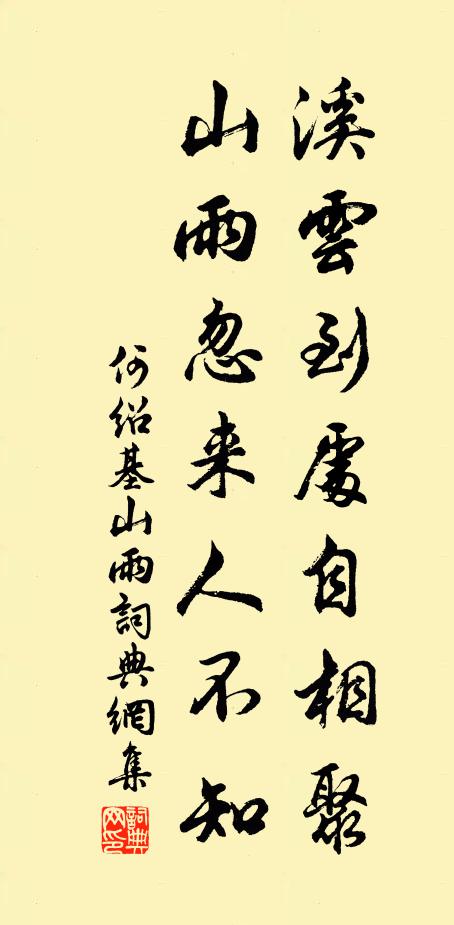 溪雲到處自相聚
山雨忽来人不知
何紹基山雨詞典網集
詞典网印